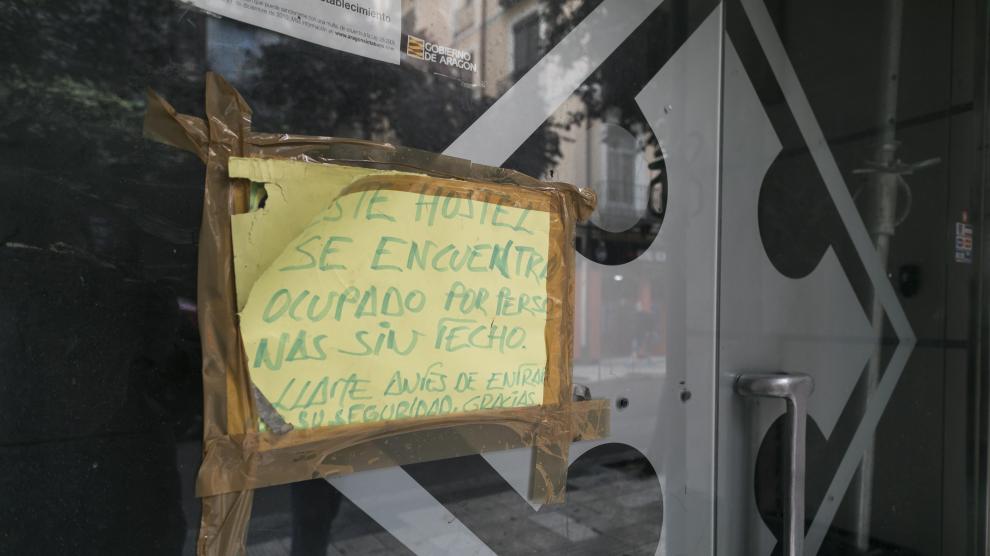 establecimiento
www.aragonsintabaco.com
GOBIERNO
DE ARAGON
ESTE HOSTEL
SE ENCUENTRA
OCUPADO POR PERSO
NAS SIN TECHO.
LLAME ANTES DE ENTRAR
SU SEGURIDAD. GRACIAS